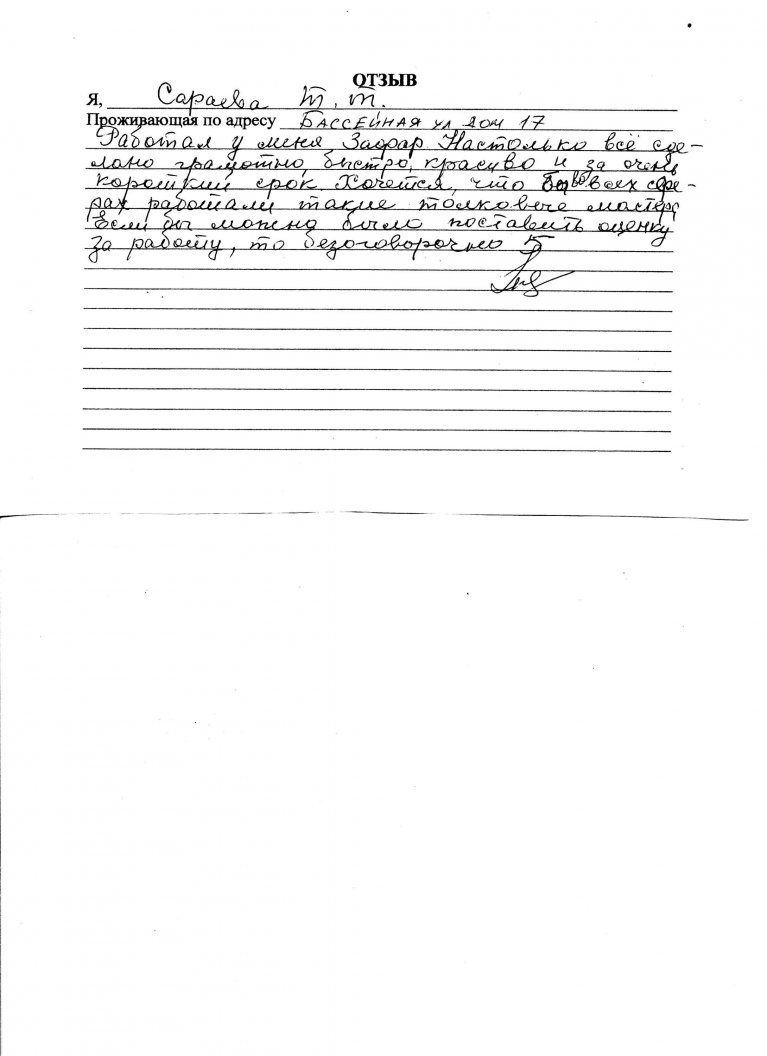 ОТЗЫВ
Я, Сараева Т. Т.
Проживающая по адресу БАССЕЙНАЯ УЛ ДОМ 17
Работал у меня Зафар Настолько всё сде-
лано грамотно, быстро, красиво и за очень
короткий срок. Хочется, что бы во всех сфе-
рах работали такие толковые мастера
Если бы можно было поставить оценку
за работу, то безоговорочно 5